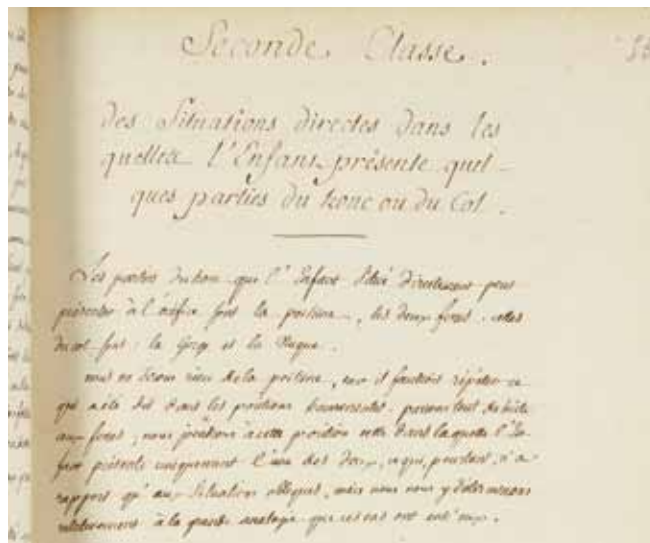 Seconde Classe.
des Situations directes dans les
quelles l'Enfant présente quel-
ques parties du tronc ou du Col.
Les parties du tronc que l'Enfant Situé directement peut
présenter à l'orifice sont la poitine, les deux fesses. celles
du col sont: la Gorge et la Nuque.
nous ne dirons rien de la poitine, car il faudroit répéter ce
qui a été dit dans les positions
aux fesses, nous joindrons à cette position celle dans laquelle l'En-
fant présente uniquement l'une des deux, ce qui, pourtant, n'a
rapport qu'aux Situations obliques, mais nous nous y déterminons
relativement à la grande analogie que ces cas ont entr'eux.